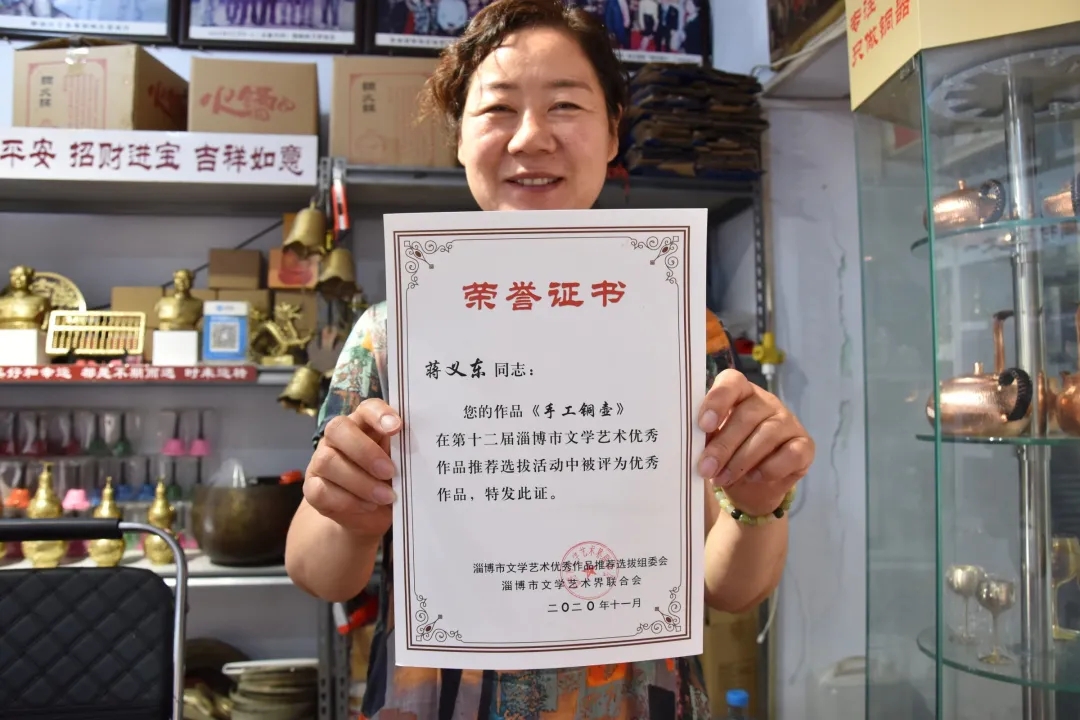 专注
只做铜器
火锅
平安 招财进宝 吉祥如意
好和幸运 都是不期而遇 时来运转
荣誉证书
蒋义东 同志：
您的作品《手工铜壶》
在第十二届淄博市文学艺术优秀
作品推荐选拔活动中被评为优秀
作品，特发此证。
淄博市文学艺术优秀作品推荐选拔组委会
淄博市文学艺术界联合会
二〇二〇年十一月